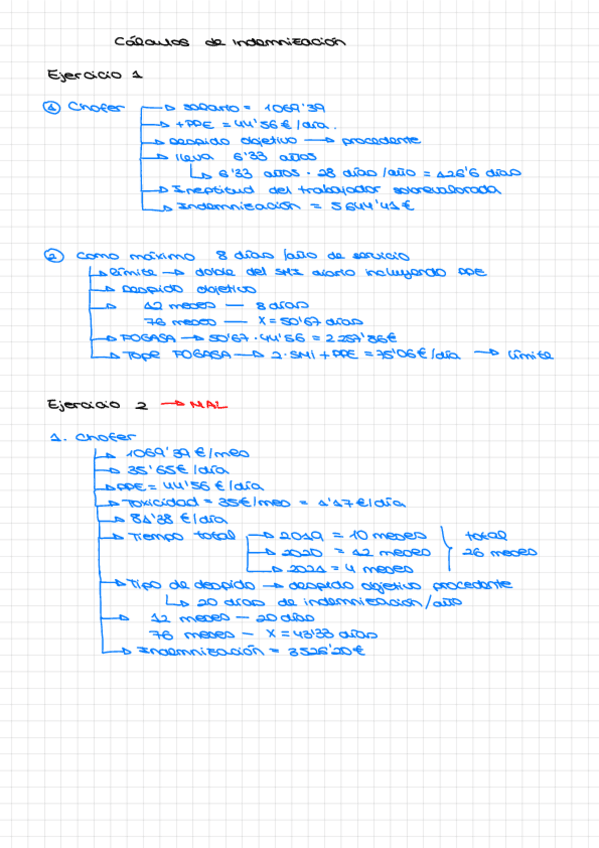 Cálculos de indemnización
Ejercicio 1
① Chofer → salario = 1069'39
→ +PPE = 44'56 €/día.
→ Despido objetivo → procedente
→ lleva 6'33 años
↳ 6'33 años · 28 días/año = 126'6 días
→ Ineptitud del trabajador sobrevalorada
→ Indemnización = 5644'41 €
② Como máximo 8 días/año de servicio
→ límite → doble del SMI diario incluyendo PPE
→ Despido objetivo
→ 12 meses — 8 días
76 meses — X = 50'67 días
→ FOGASA → 50'67 · 44'56 = 2.257'86€
→ Tope FOGASA → 2·SMI + PPE = 75'06 €/día → límite
Ejercicio 2 → MAL
1. Chofer
→ 1069'39 €/mes
→ 35'65€/día
→ PPE = 44'56 €/día
→ Toxicidad = 35€/mes = 1'17€/día
→ 81'38 €/día
→ Tiempo total → 2019 = 10 meses total
→ 2020 = 12 meses 26 meses
→ 2021 = 4 meses
→ Tipo de despido → despido objetivo procedente
↳ 20 días de indemnización/año
→ 12 meses — 20 días
76 meses — X = 43'33 días
→ Indemnización = 3526'20€